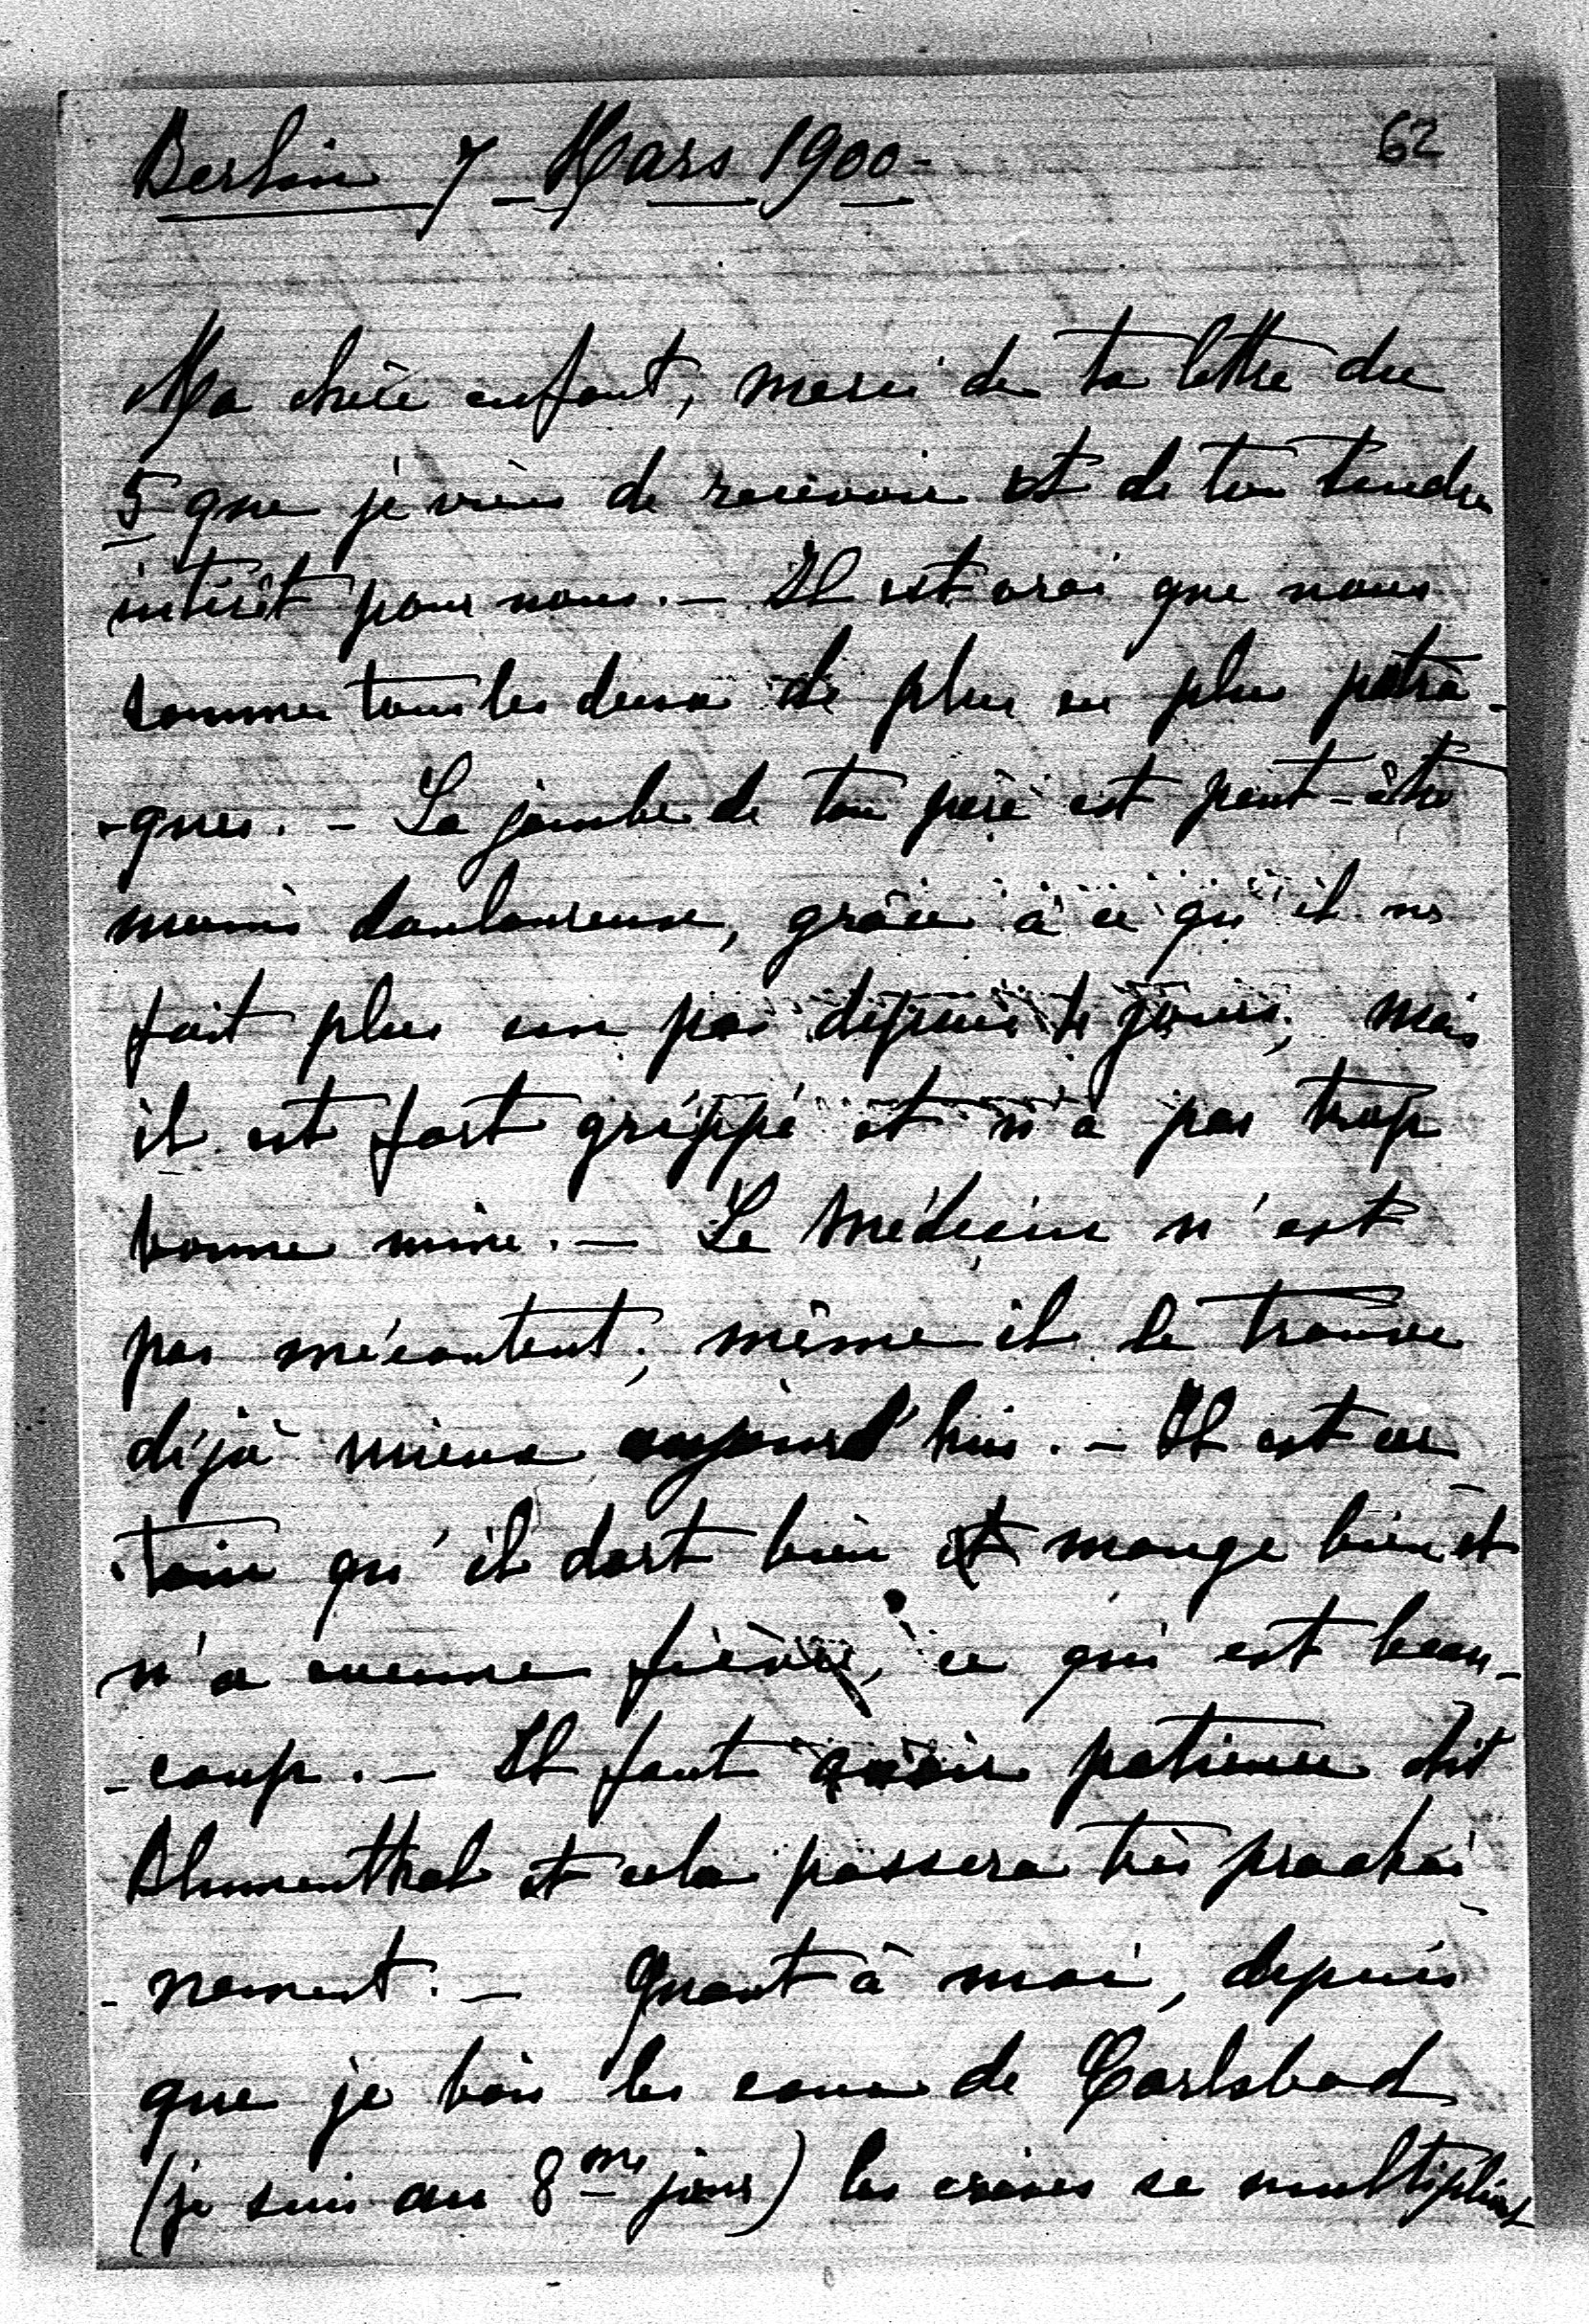 Berlin 7 Mars 1900 -
62
Ma chère enfant, merci de ta lettre du
5 que je viens de recevoir et de ton tendre
intérêt pour nous. - Il est vrai que nous
sommes tous les deux de plus en plus patra-
-ques. - La jambe de ton père est peut-être
moins douloureuse, grâce à ce qu'il ne
fait plus un pas depuis jours, mais
il est fort grippé et n'a pas trop
bonne mine. - Le médecin n'est
pas mécontent; même il le trouve
déjà mieux aujourd'hui. - Il est cer-
-tain qu'il dort bien et mange bien et
n'a aucune fièvre, ce qui est beau-
-coup. - Il faut avoir patience dit
Blumenthal et cela passera très prochai-
-nement. - Quant à moi, depuis
que je bois les eaux de Carlsbad
(je suis au 8me jour) les crises se multiplient